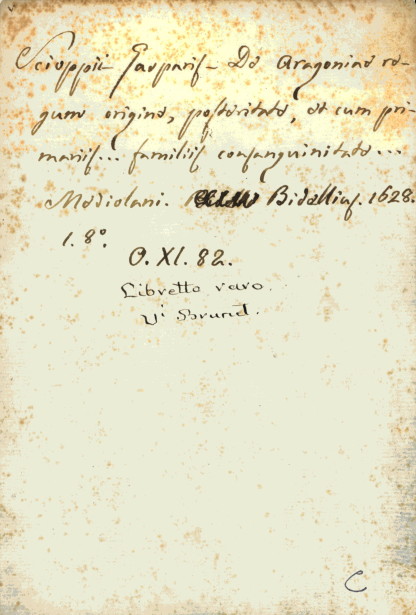 Scioppii Gasparis - De Aragoniae re-
gum origine, posteritate, et cum pri-
mariis... familiis consanguinitate...
Mediolani. Bidellius. 1628.
1. 8°.
O. XI. 82.
Libretto raro.
Vi Brunet.
C